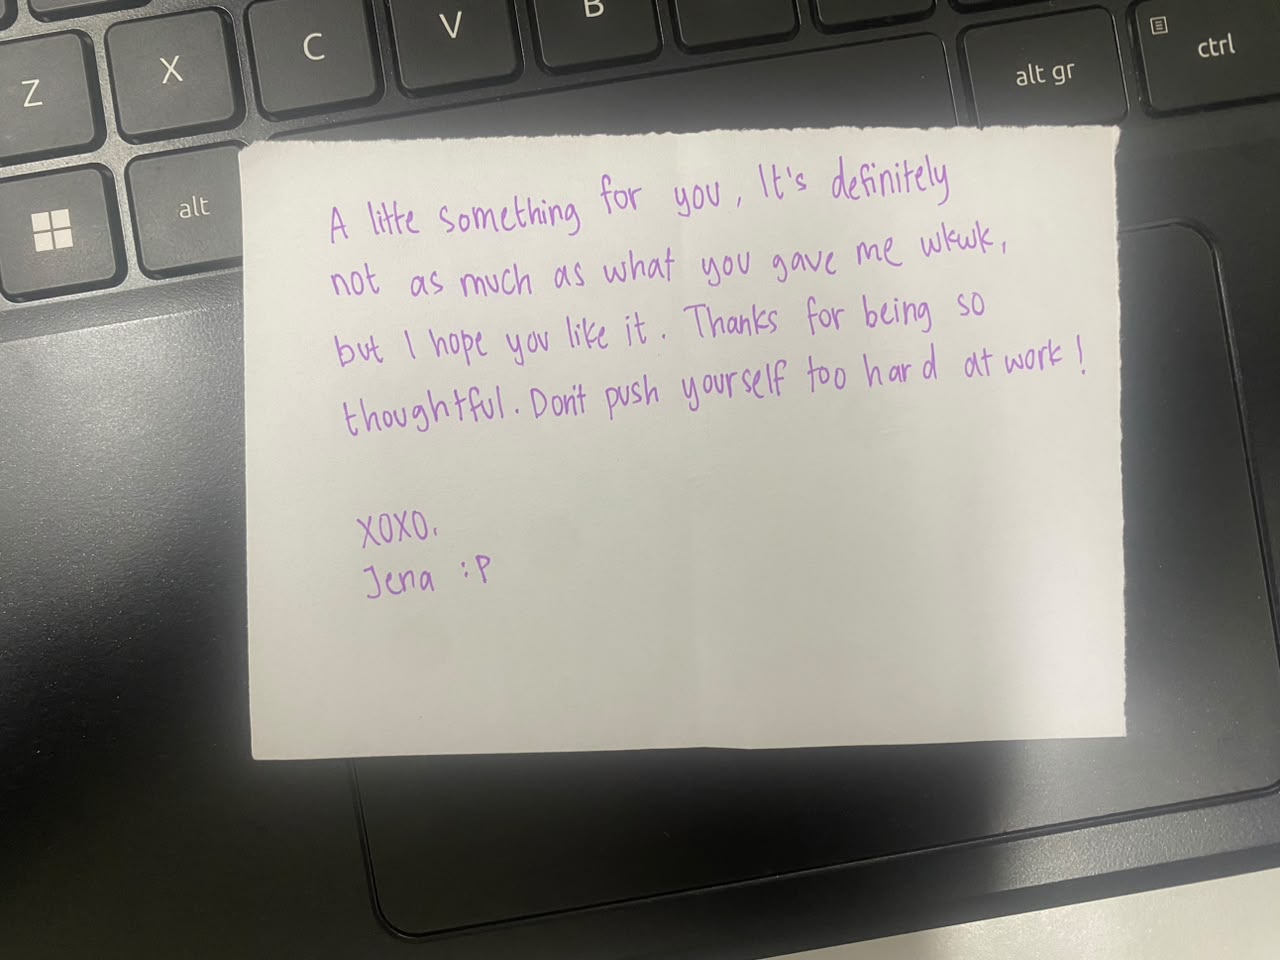 Z X C V B
alt gr
ctrl
alt
A little something for you, It's definitely
not as much as what you gave me wkwk,
but I hope you like it. Thanks for being so
thoughtful. Don't push yourself too hard at work!
XOXO,
Jena :P